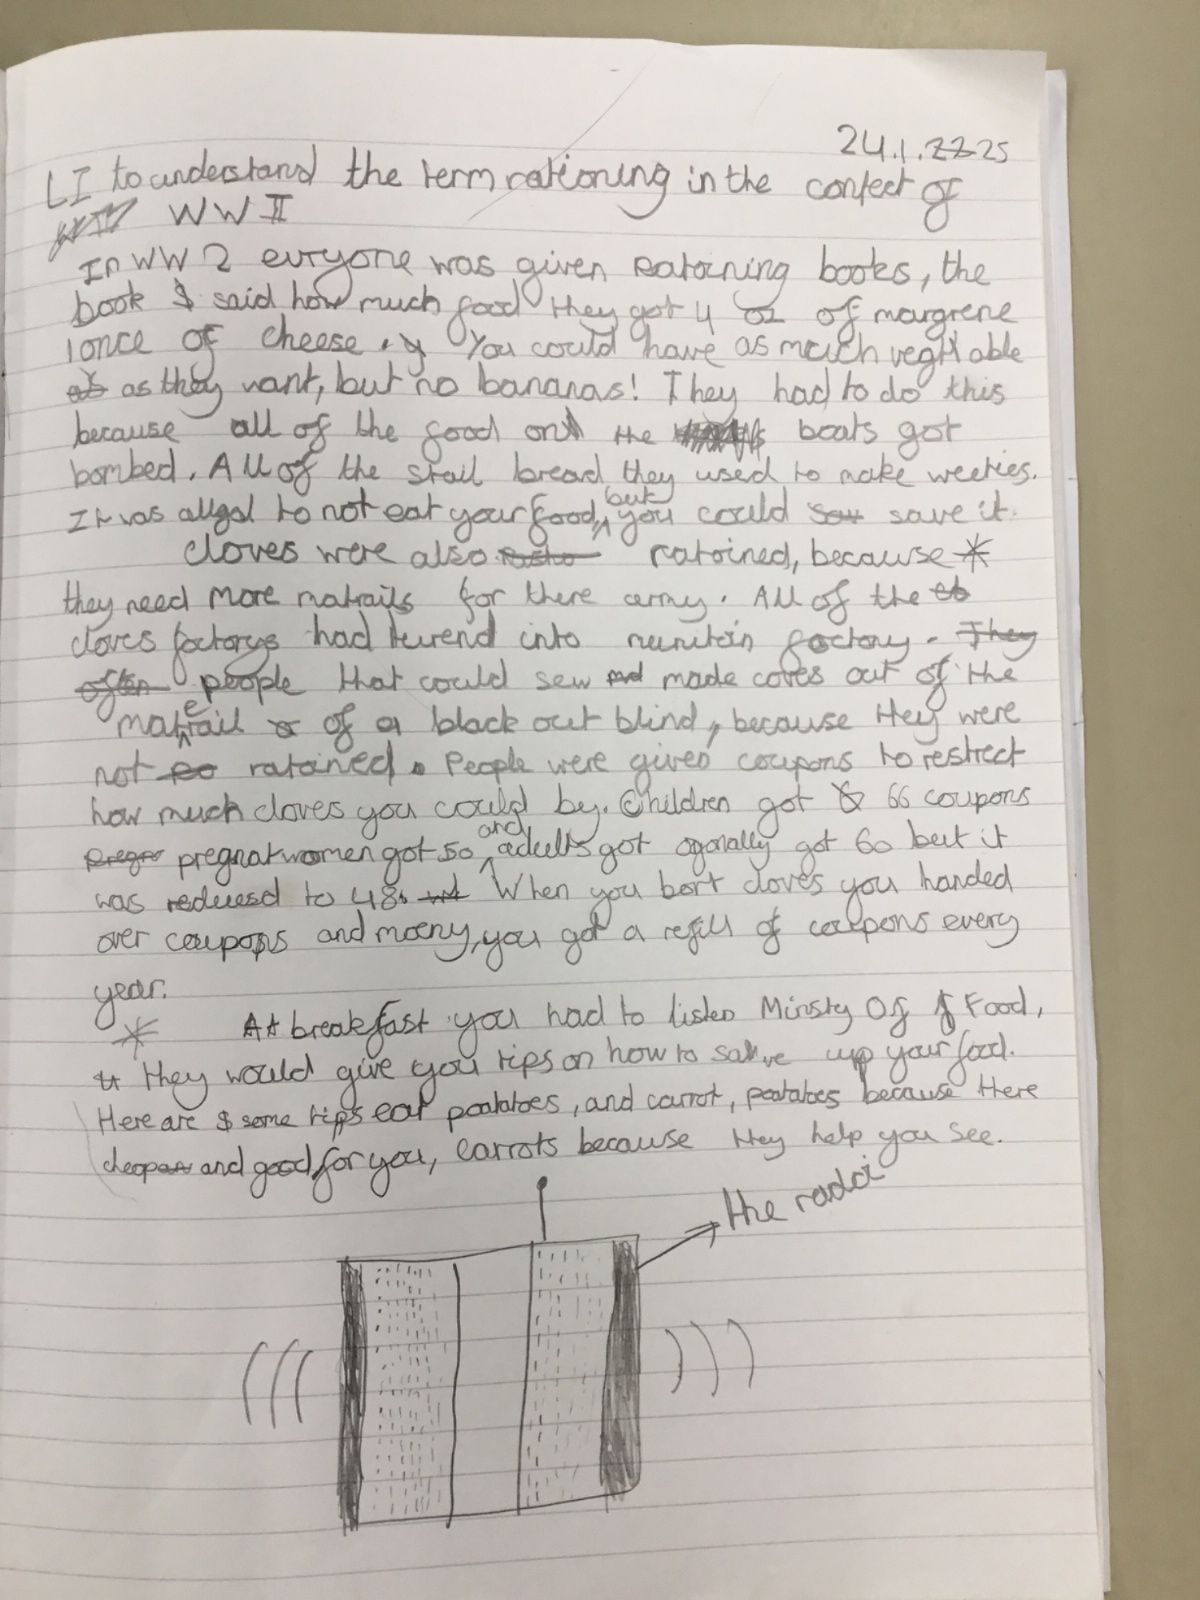 24.1.2225
LI to understand the term rationing in the contect of
WW II
In WW 2 euryone was given ratoining books, the
book said how much food they got 4 oz of margrene
1 once of cheese. You could have as much vegitable
as they want, but no bananas! They had to do this
because all of the food on the boats got
bombed. All of the stail bread they used to make weeties.
It was allgal to not eat your food, but you could save it.
cloves were also ratoined, because *
they need more matrails for there army. All of the
cloves factorys had twrend into munitoin factory.
people that could sew made coves out of the
matreail of a black out blind, because they were
not ratoined. People were given coupons to restrect
how much cloves you could by. Children got 66 coupons
pregnat women got 50 and adults got ogonally got 60 but it
was reducesd to 48. When you bort cloves you handed
over coupons and moeny, you got a refill of coupons every
year.
* At breakfast you had to listen Minsty Of Food,
they would give you tips on how to salve up your food.
Here are some tips eat poatatoes, and carrot, poatatoes because there
cheap and good for you, carrots because they help you see.
the radoi